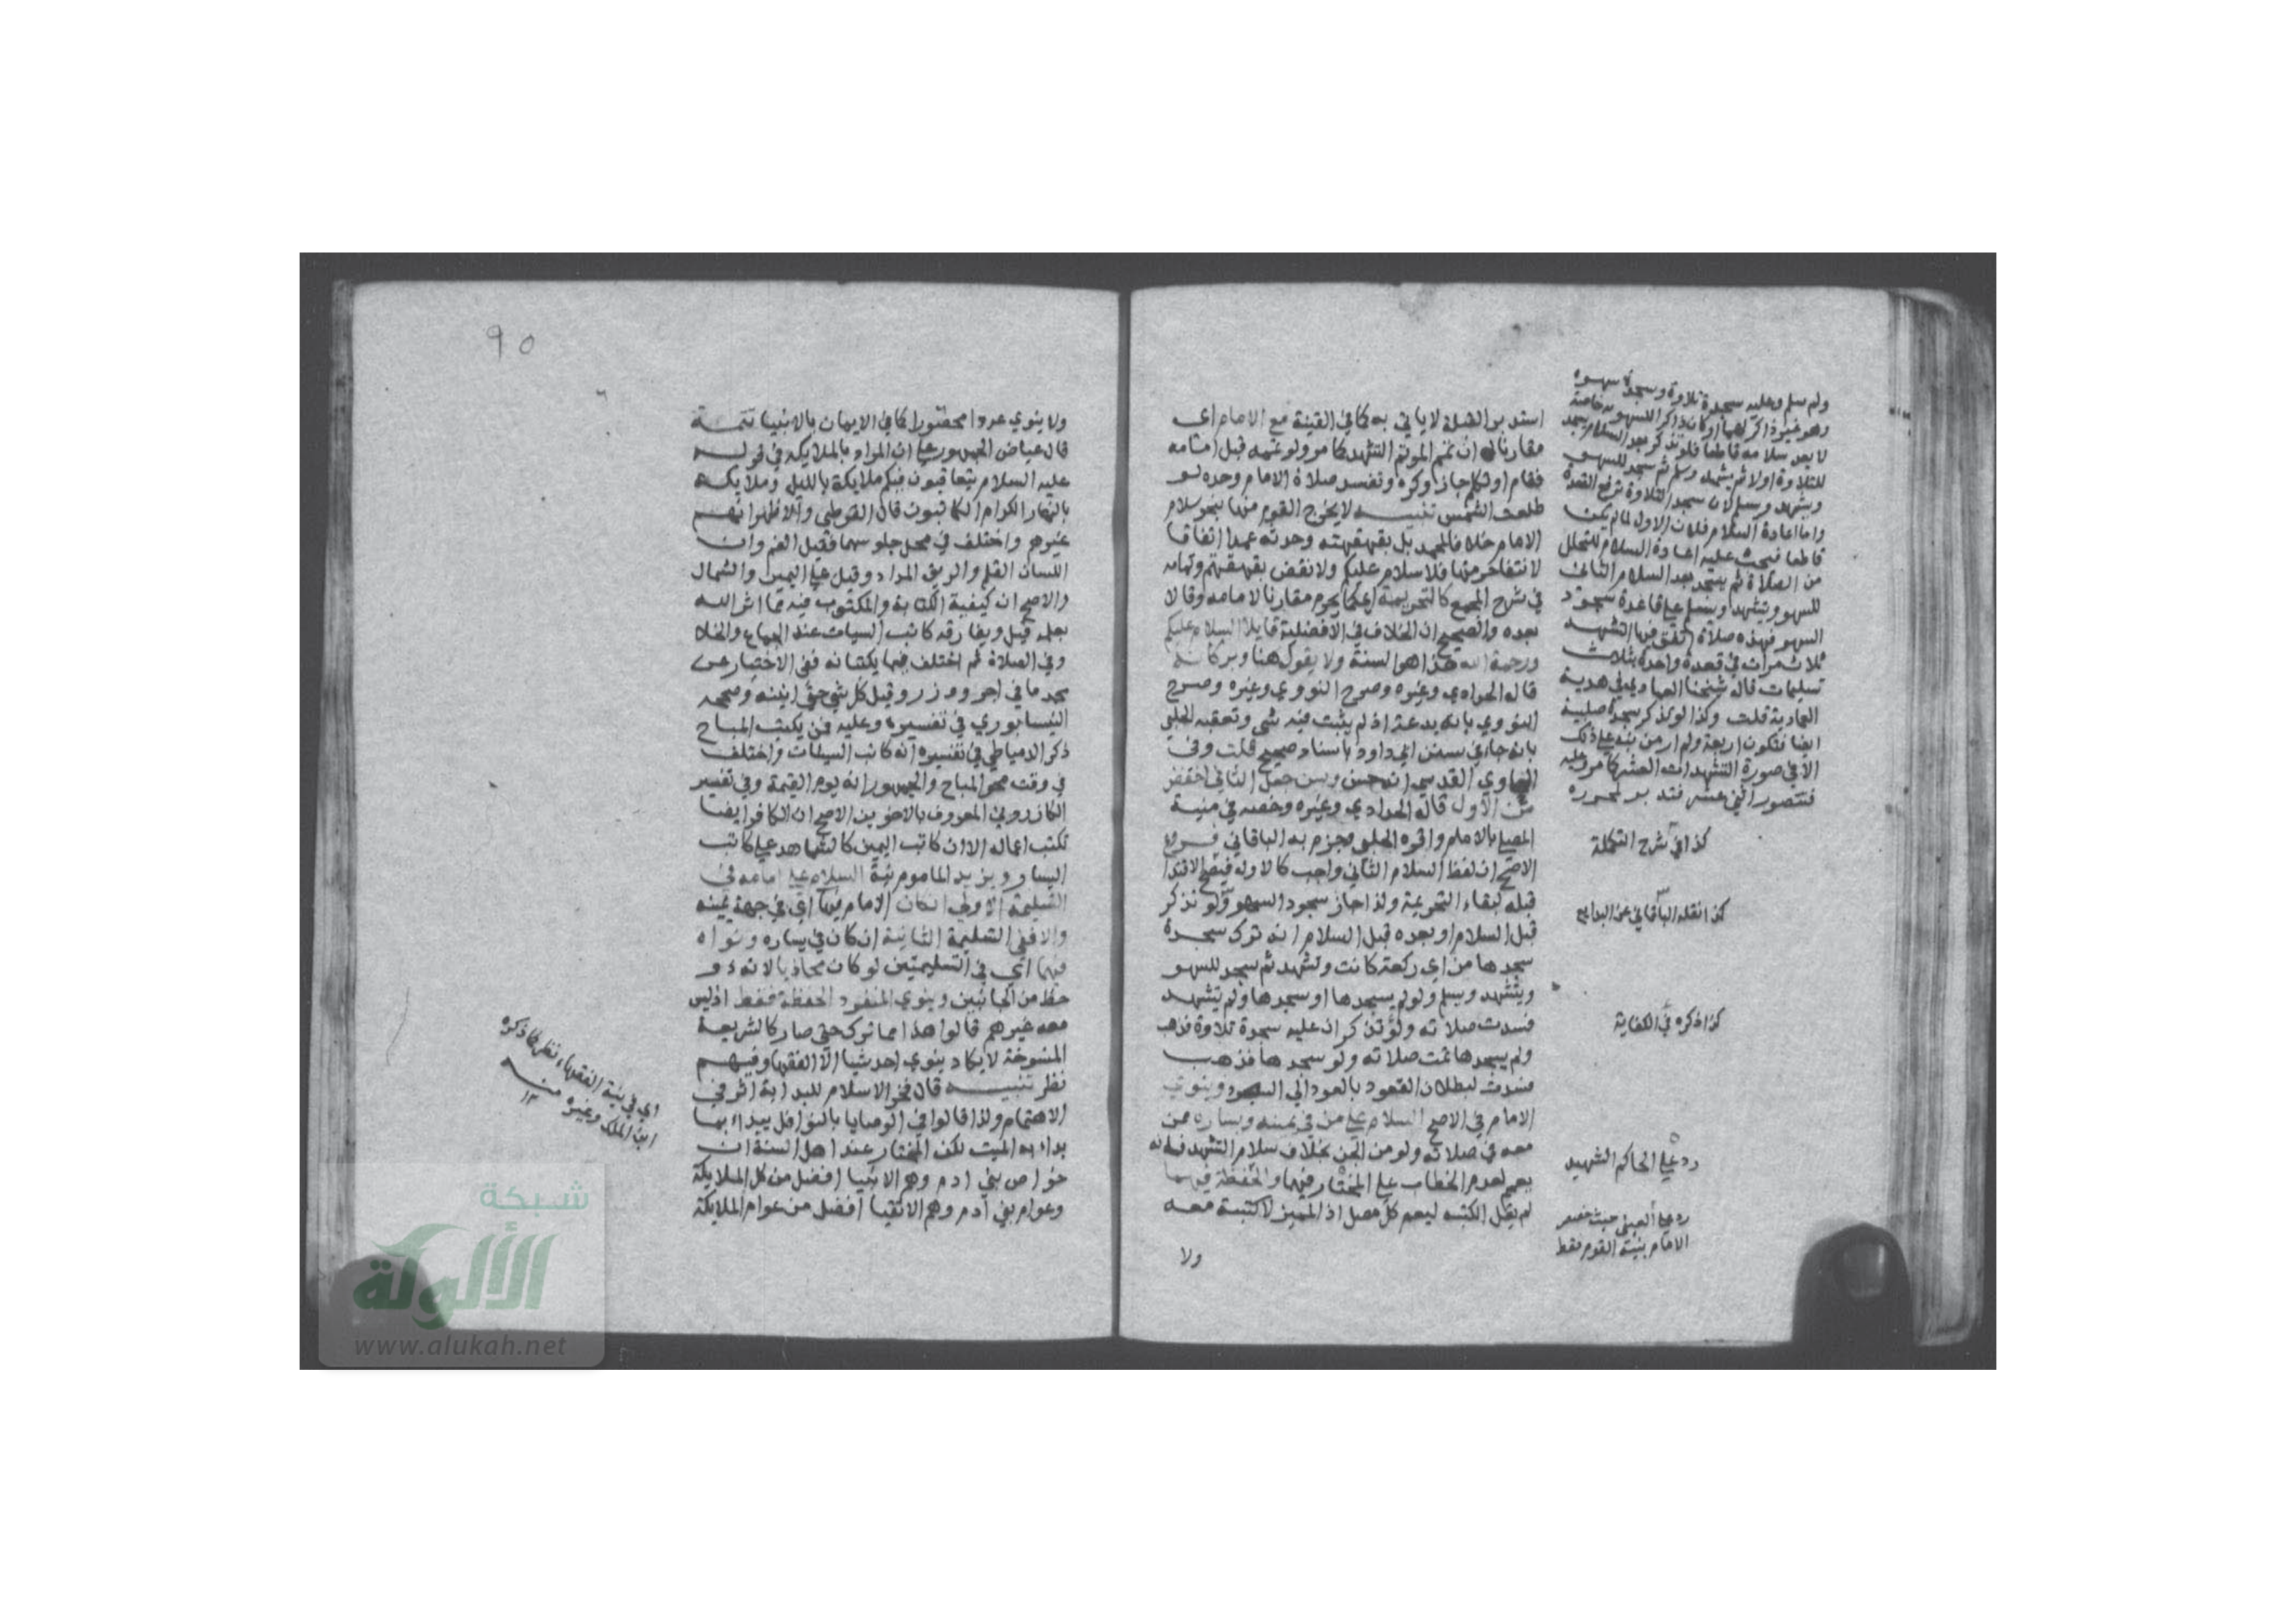 استدبر القبلة لا ياتي به كما في القنية مع الامام اى
مقارنا له ان تمم الموتم التشهد كما مر ولو تممه قبل امامه
فقام او تكلم جاز وكره وتفسد صلاة الامام وحده لو
طلعت الشمس تنبيه لا يخرج القوم منها بنحو سلام
الامام خلافا لمحمد بل بقهقهته وحدثه عمدا اتفاقا
لانتفا حرمتها فلا سلام عليهم ولا نقض بقهقهتم وتمامه
في شرح المجمع كالتحريمة اي كما يحرم مقارنا لامامه وقالا
بعده والصحيح ان الخلاف في الافضلية قايلا السلام عليكم
ورحمة الله هذا هو السنة ولا يقول هنا وبركاته
قاله الحدادي وغيره وصرح النووي وغيره وصرح
النووي بانه بدعة اذ لم يثبت فيه شى وتعقبه الحلبي
بانه جا في سنن ابي داود باسناد صحيح قلت وفي
الحاوي القدسي انه حسن وسن جعل الثاني اخفض
من الاول قاله الحدادي وغيره وخصه في منية
المصلي بالامام واقره الحلبي وجزم به الباقاني فروع
الاصح ان لفظ السلام الثاني واجب كالاول فيصح الاقتدا
قبله لبقاء التحريمة ولذا جاز سجود السهو ولو تذكر
قبل السلام او بعده قبل السلام انه ترك سجدة
سجدها من اي ركعة كانت وتشهد ثم سجد للسهو
ويتشهد ويسلم ولو لم يسجدها او سجدها ولم يتشهد
فسدت صلاته ولو تذكر ان عليه سجدة تلاوة فذهب
ولم يسجدها تمت صلاته ولو سجدها فذهب
فسدت لبطلان القعود بالعود الي السجود وينوي
الامام في الاصح السلام علي من في يمينه ويساره ممن
معه في صلاته ولو من الجن بخلاف سلام التشهد فانه
يعم لعدم الخطاب علي المختار فيهما والحفظة فيهما
لم يقل الكتبة ليعم كل مصل اذ المميز لا كتبة معه
ولا
ولم سلم وعليه سجدة تلاوة وسجدتا سهو
وهو غير ذاكر لهما او كان ذاكرا للسهو خاصة
لا يعد سلامه قاطعا فلو تذكر بعد السلام سجد
للتلاوة اولا ثم يتشهد وسلم ثم سجد للسهو
وتشهد وسلم لان سجدة التلاوة ترفع القعدة
واما اعادة السلام فلان الاول لما لم يكن
قاطعا فيجب عليه اعادة السلام للتحلل
من الصلاة ثم يسجد بعد السلام الثاني
للسهو ويتشهد ويسلم علي قاعدة سجود
السهو فهذه صلاة اتفق فيها التشهد
ثلاث مرات في قعدة واحدة بثلاث
تسليمات قاله شيخنا العمادي في هدية
العمادية قلت وكذا لو تذكر سجدة صلبية
ايضا فتكون اربعة ولم ار من نبه علي ذلك
الا في صورة التشهدات العشر كما مر وعليه
فتتصور اثني عشر فتدبر بحوره
كذا في شرح التكملة
كذا نقله الباقاني عن البدايع
كذا ذكره في الكفاية
رد علي الحاكم الشهيد
رد علي العيني حيث خصص
الامام بنية القوم فقط
٩٥
ولا ينوي عددا محصورا كما في الايمان بالانبيا تتمة
قال عياض الجمهور علي ان المراد بالملايكة في قوله
عليه السلام يتعاقبون فيكم ملايكة بالليل وملايكة
بالنهار الكرام الكاتبون قال القرطبي والاظهر انهم
غيرهم واختلف في محل جلوسهما فقيل الفم وان
اللسان القلم والريق المداد وقيل علي اليمين والشمال
والاصح ان كيفية الكتابة والمكتوب فيه مما استاثر الله
بعلمه قيل ويفارقه كاتب السيات عند الجماع والخلا
وفي الصلاة ثم اختلف فيما يكتبانه ففي الاختيار عن
محمد ما فيه اجر ووزر وقيل كل شي حتي انينه وصححه
النيسابوري في تفسيره وعليه فمن يكتب المباح
ذكر الدمياطي في تفسيره انه كاتب السيئات واختلف
في وقت محو المباح والجمهور انه يوم القيمة وفي تفسير
الكازروني المعروف بالاخوين الاصح ان الكافر ايضا
تكتب اعماله الا ان كاتب اليمين كالشاهد علي كاتب
اليسار ويزيد الماموم نية السلام علي امامه في
التسليمة الاولي ان كان الامام فيها اي في جهة يمينه
والا ففي التسليمة الثانية ان كان في يساره ونواه
فيهما اي في التسليمتين لو كان محاذيا لانه ذو
حظ من الجانبين وينوي المنفرد الحفظة فقط اذ ليس
معه غيرهم قالوا هذا مما ترك حتي صار كالشريعة
المنسوخة لا يكاد ينوي احد شيا الا الفقها وفيهم
نظر تنبيه قال فخر الاسلام للبداية اثر في
الاهتمام ولذا قالوا في الوصايا بالنوافل يبداء بما
بداء به الميت لكن المختار عند اهل السنة ان
خواص بني ادم وهم الانبيا افضل من كل الملايكة
وعوام بني ادم وهم الاتقيا افضل من عوام الملايكة
اي في نية الفقهاء نظر كما ذكره
ابن الملك وغيره منه
١٢
شبكة
الألوكة
www.alukah.net